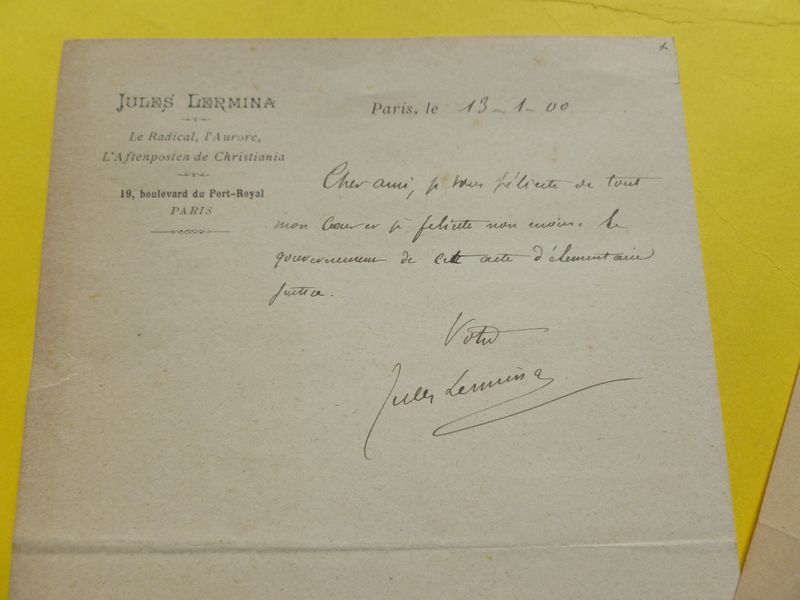 JULES LERMINA
Le Radical, l'Aurore,
L'Aftenposten de Christiania
19, boulevard du Port-Royal
PARIS
Paris, le 13-1-00
Cher ami, je vous félicite de tout
mon coeur et je félicite non moins le
gouvernement de cet acte d'élémentaire
justice.
Votre
Jules Lermina